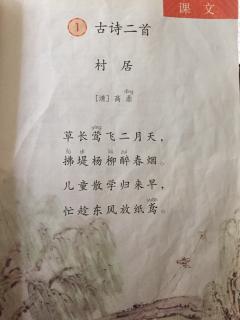 课文
1 古诗二首
村居
[清] 高鼎
草长莺飞二月天，
拂堤杨柳醉春烟。
儿童散学归来早，
忙趁东风放纸鸢。